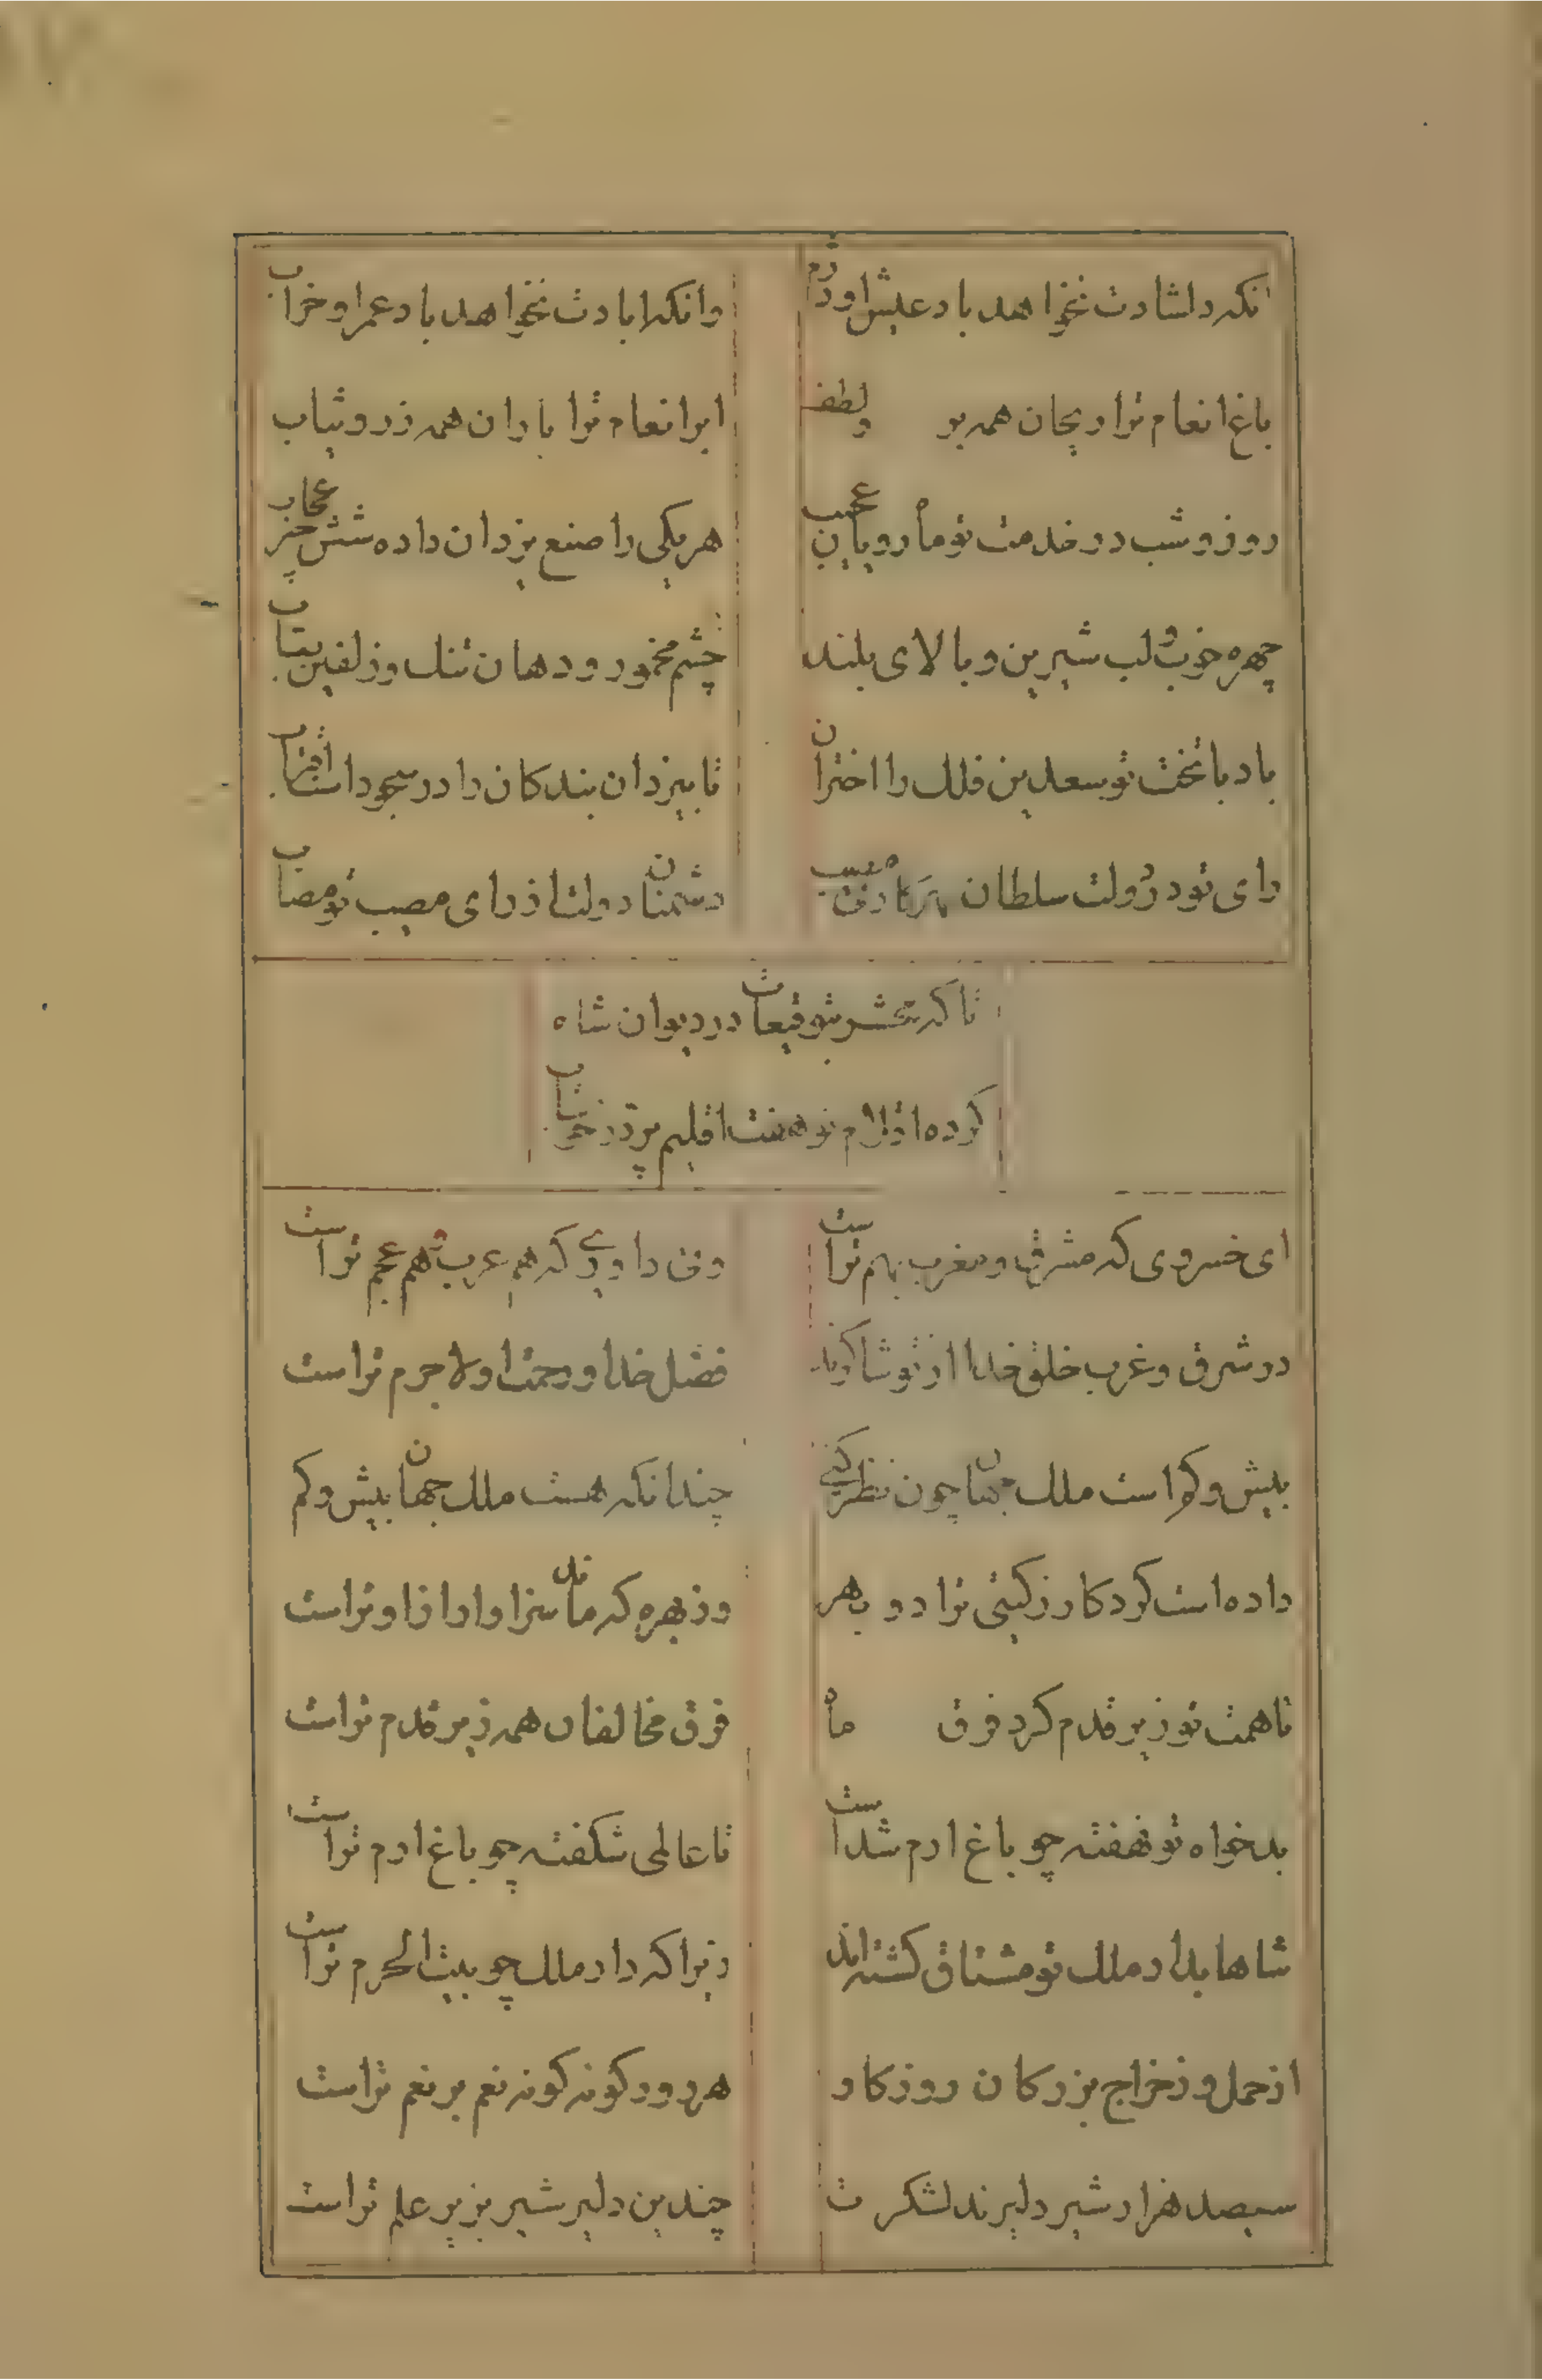 انکه دلشادت نخواهد باد عیش او دژم
وانکه ابادت نخواهد باد عمر او خراب
باغ انعام ترا ریحان همه بو ولطف
ابر انعام ترا باران همه زر و ثیاب
روز و شب در خدمت تو ماه رویان عجب
هر یکی را صنع یزدان داده شش چیز عجاب
چهره خوب و لب شیرین و بالای بلند
چشم مخمور و دهان تنک و زلفین بتاب
باد با تخت تو سعدین فلک را اختران
تا بیزدان بندکان را در سجود است اقتراب
رای تو در دولت سلطان مصیب
دشمنان دولت از رای مصیب تو مصاب
تا که بحشر توقیعات در دیوان شاه
کرده اقلام تو هفت اقلیم پر در خوشاب
ای خسروی که مشرق و مغرب بهم تراست
وی داوری که هم عرب و هم عجم تراست
در شرق و غرب خلق خدا از تو شاکرند
فضل خدا و رحمت او لاجرم تراست
بیش و کم است ملک جهان چون نظر کنی
چندانکه هست ملک جهان بیش و کم
داده است کردکار ز کیتی ترا دو بهر
وز بهره که ماند سزاوار از او تراست
تا همت تو زیر قدم کرد فرق ماه
فرق مخالفان همه زیر قدم تراست
بدخواه تو نهفته چو باغ ارم شداست
تا عالمی شکفته چو باغ ارم تراست
شاها بداد ملک تو مشتاق کشته اند
زیرا که دار ملک چو بیت الحرم تراست
از حمل وز خراج بزرکان روزکار
هر دو کونه کونه نعم بر نعم تراست
سیصد هزار شیر دلیرند لشکرت
چندین دلیر شیر بزیر علم تراست